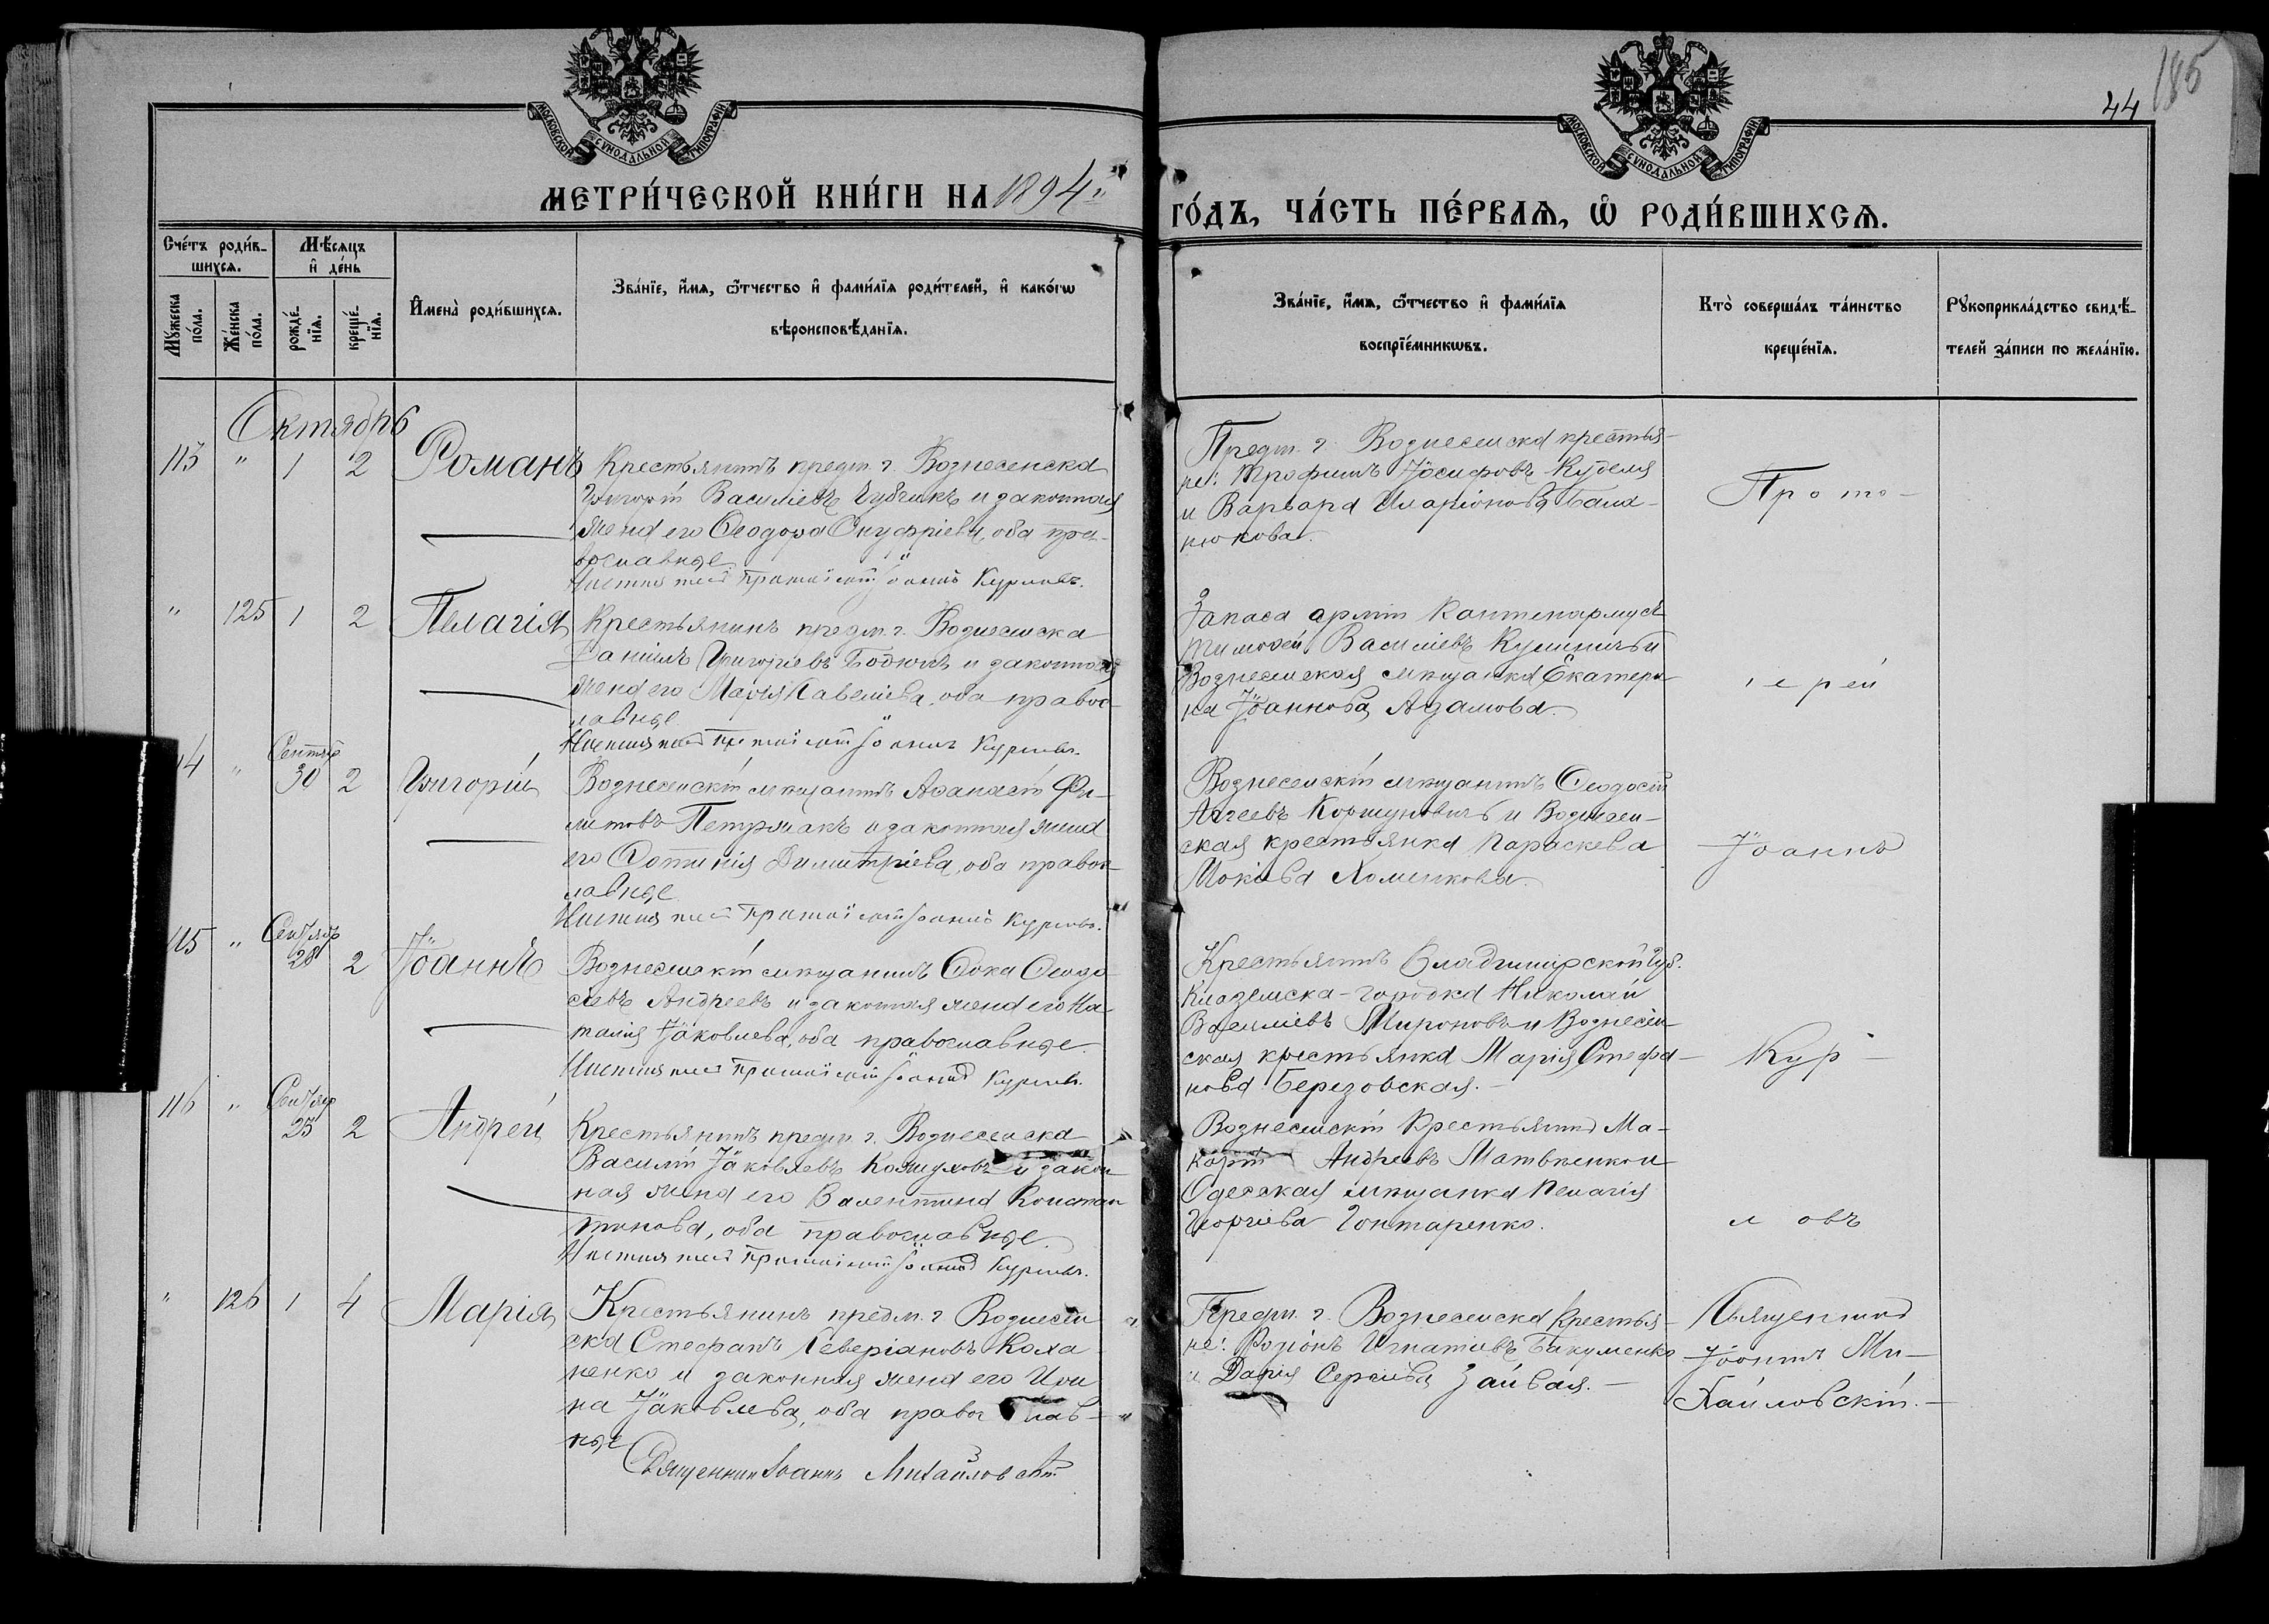 185
44
МОСКОВСКОЙ СѴНОДАЛЬНОЙ ТИПОГРАФІИ
МОСКОВСКОЙ СѴНОДАЛЬНОЙ ТИПОГРАФІИ
МЕТРИ́ЧЕСКОЙ КНИ́ГИ НА 1894й
ГО́ДЪ, ЧА́СТЬ ПЕ́РВАѦ, Ѡ҆ РОДИ́ВШИХСѦ.
Сче́тъ роди́в-
шихсѧ.
Мѣ́сѧцъ
и҆ де́нь
Мꙋ́жеска по́ла.
Же́нска по́ла.
рожде́-
нїѧ.
креще́-
нїѧ.
И҆мена̀ роди́вшихсѧ.
Зва́нїе, и҆́мѧ, ѻ҆́тчество и҆ фами́лїѧ роди́телей, и҆ како́гѡ
вѣроисповѣ́данїѧ.
Зва́нїе, и҆́мѧ, ѻ҆́тчество и҆ фами́лїѧ
воспрїе́мникѡвъ.
Кто̀ соверша́лъ та́инство
креще́нїѧ.
Рꙋкоприкла́дство свидѣ́-
телей за́писи по жела́нїю.
Октябрь
113 " 1 2 Романъ
Крестьянинъ предм. г. Вознесенска
Григорій Василіевъ Чубчикъ и законная
жена его Ѳеодора Онуфріева, оба пра-
вославные.
Протоіерей Іоаннъ Курловъ.
Предм. г. Вознесенска крестья-
не: Трофимъ Іосифовъ Кубеля
и Варвара Иларіонова Бала-
нюкова.
Прото-
" 125 1 2 Пелагія
Крестьянинъ предм. г. Вознесенска
Даніилъ Григоріевъ Бодюлъ и законная
жена его Марія Савеліева, оба правос-
лавные.
Протоіерей Іоаннъ Курловъ.
Запаса арміи Каптенармусъ
Тимоѳей Василіевъ Кулиничъ и
Вознесенская мѣщанка Екатери-
на Іоаннова Адамова.
іерей
114 " Сентяб
30 2 Григорій
Вознесенскій мѣщанинъ Аѳанасій Фи-
литовъ Петржакъ и законная жена
его Фотинія Димитріева, оба правос-
лавные.
Протоіерей Іоаннъ Курловъ.
Вознесенскій мѣщанинъ Ѳеодосій
Аггеевъ Коршуновичъ и Вознесен-
ская крестьянка Параскева
Мокіева Хоменкова.
Іоаннъ
115 " Сентябр
28 2 Іоаннъ
Вознесенскій мѣщанинъ Фока Ѳеодо-
сіевъ Андреевъ и законная жена его На-
талія Іаковлева, оба православные.
Протоіерей Іоаннъ Курловъ.
Крестьянинъ Владимирской Губ.
городка Николай
Василіевъ Мироновъ и Вознесен-
ская крестьянка Марія Стефа-
нова Березовская.-
Кур-
116 " Сентябр
25 2 Андрей
Крестьянинъ предм. г. Вознесенска
Василій Іаковлевъ Кожуховъ и закон-
ная жена его Валентина Констан-
тинова, оба православные.
Протоіерей Іоаннъ Курловъ.
Вознесенскій Крестьянинъ Ма-
карій Андреевъ Матвѣенко и
Одесская мѣщанка Пелагія
Георгіева Гонтаренко.
ловъ
" 126 1 4 Марія
Крестьянинъ предм. г. Вознесен-
ска Стефанъ Северіановъ Коха-
ненко и законная жена его Ири-
на Іаковлева, оба правос лав-
ные
Священникъ Іоаннъ Михайловскій
Предм. г. Вознесенска Крестья-
не: Родіонъ Игнатіевъ Бакуменко
и Дарія Сергіева Заивая.-
Священникъ
Іоаннъ Ми-
хайловскій.-